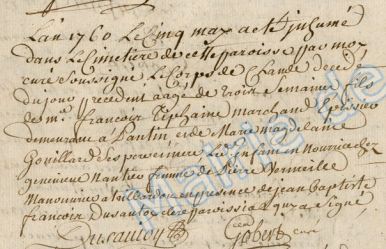 L'an 1760 le cinq may a eté inhumé
dans le cimetiere de cette paroisse par moy
curé soussigné le corps de Claude decedé
du jour precedent agé de trois semaines fils
de mr. françois Tiphaine marchand Epissier
demeurant a Pantin et de Marie magdelaine
Gouillard ses pere et mere Le d. Enfant en Nourrice chez
genevieve Nantier femme de Pierre Vermeille
Manouvrier a en presence de jean Baptiste
françois Dusautoy clerc paroissial qui a signé
Dusautoy Gobert
curé